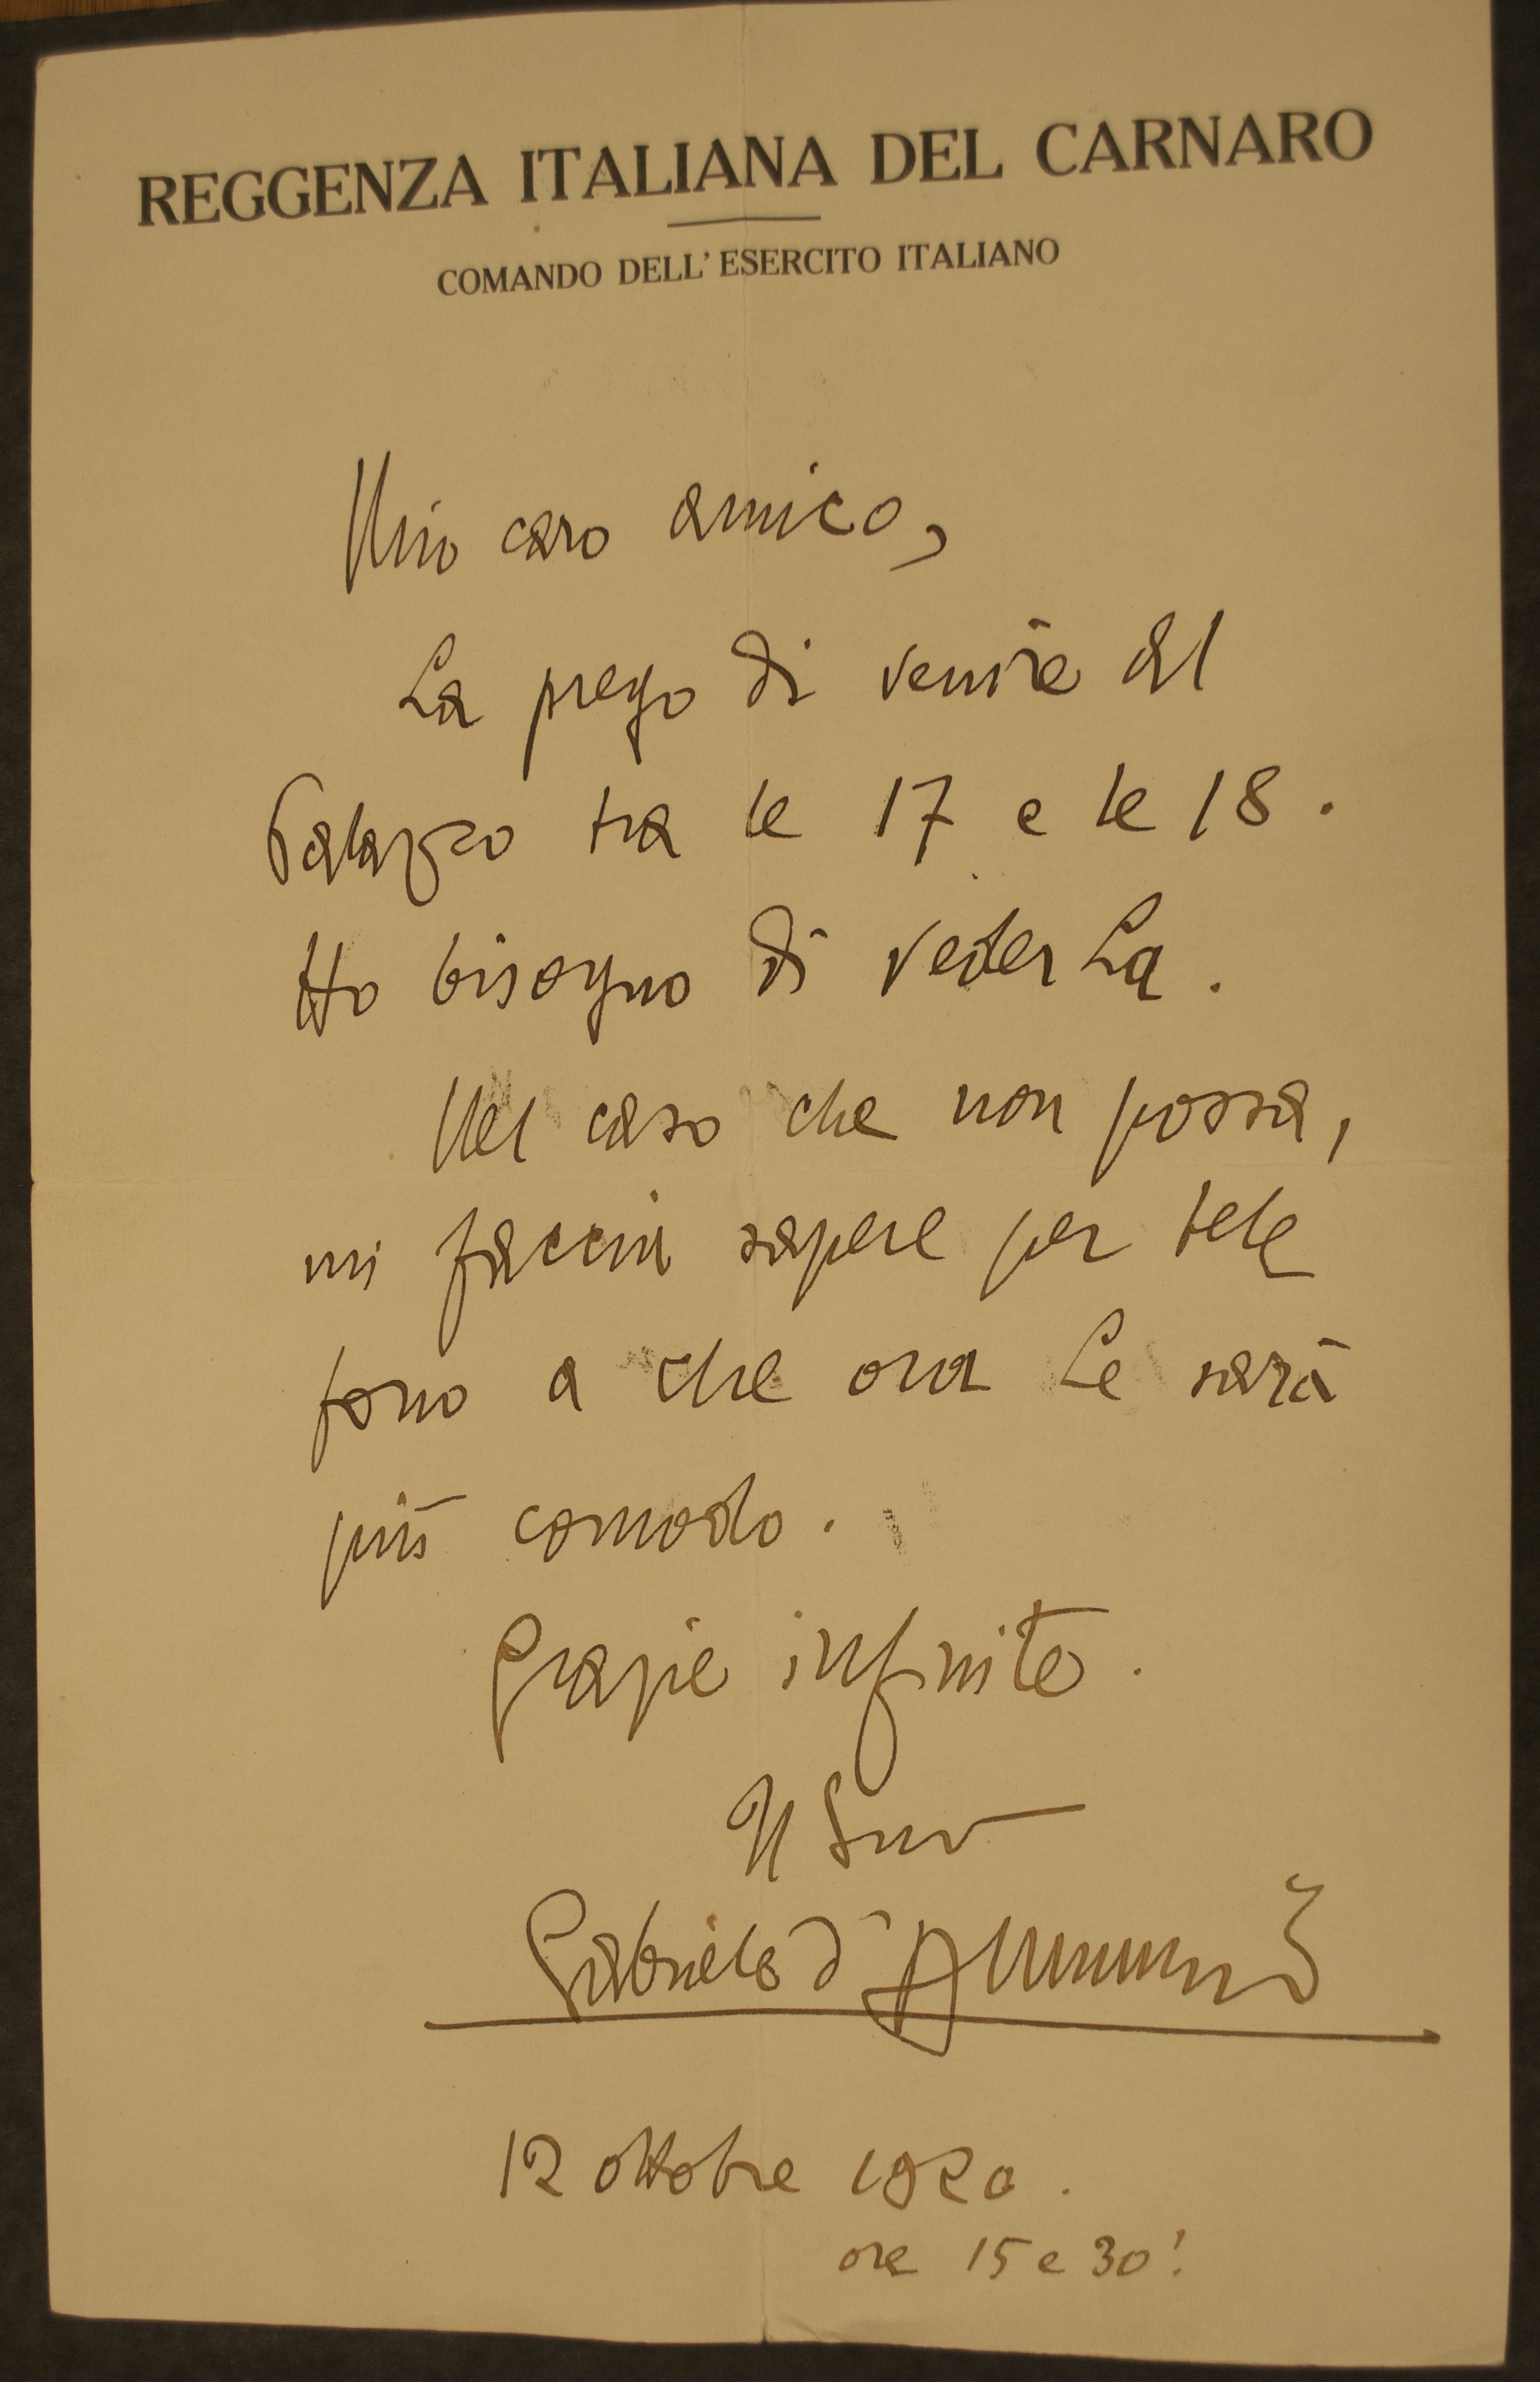 REGGENZA ITALIANA DEL CARNARO
COMANDO DELL' ESERCITO ITALIANO
Mio caro amico,
La prego di venire al
Palazzo tra le 17 e le 18.
Ho bisogno di veder La.
Nel caso che non possa,
mi faccia sapere per tele
fono a che ora Le sarà
più comodo.
Grazie infinite.
Il Suo
Gabriele d'Annunzio
12 ottobre 1920.
ore 15 e 30'.